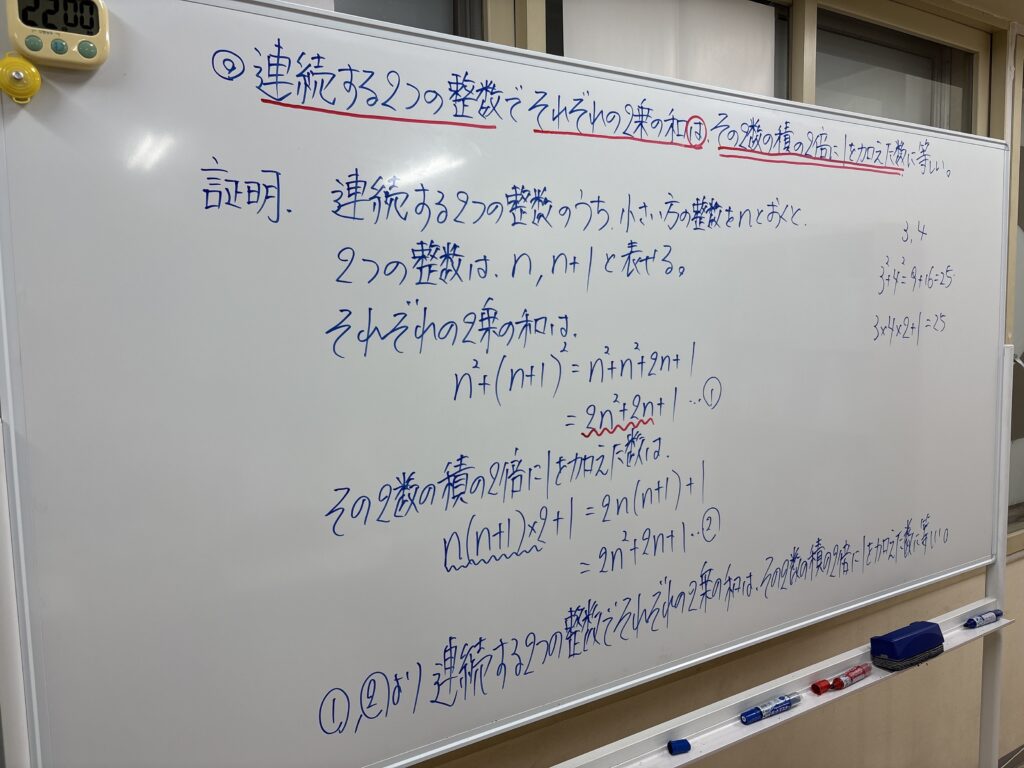 2200
② 連続する2つの整数でそれぞれの2乗の和は、その2数の積の2倍に1を加えた数に等しい。
証明. 連続する2つの整数のうち、小さい方の整数をnとおくと、
2つの整数は、n, n+1と表せる。
それぞれの2乗の和は、
n²+(n+1)²=n²+n²+2n+1
=2n²+2n+1…①
その2数の積の2倍に1を加えた数は、
n(n+1)×2+1=2n(n+1)+1
=2n²+2n+1…②
①,②より連続する2つの整数でそれぞれの2乗の和は、その2数の積の2倍に1を加えた数に等しい。
3, 4
3²+4²=9+16=25
3×4×2+1=25